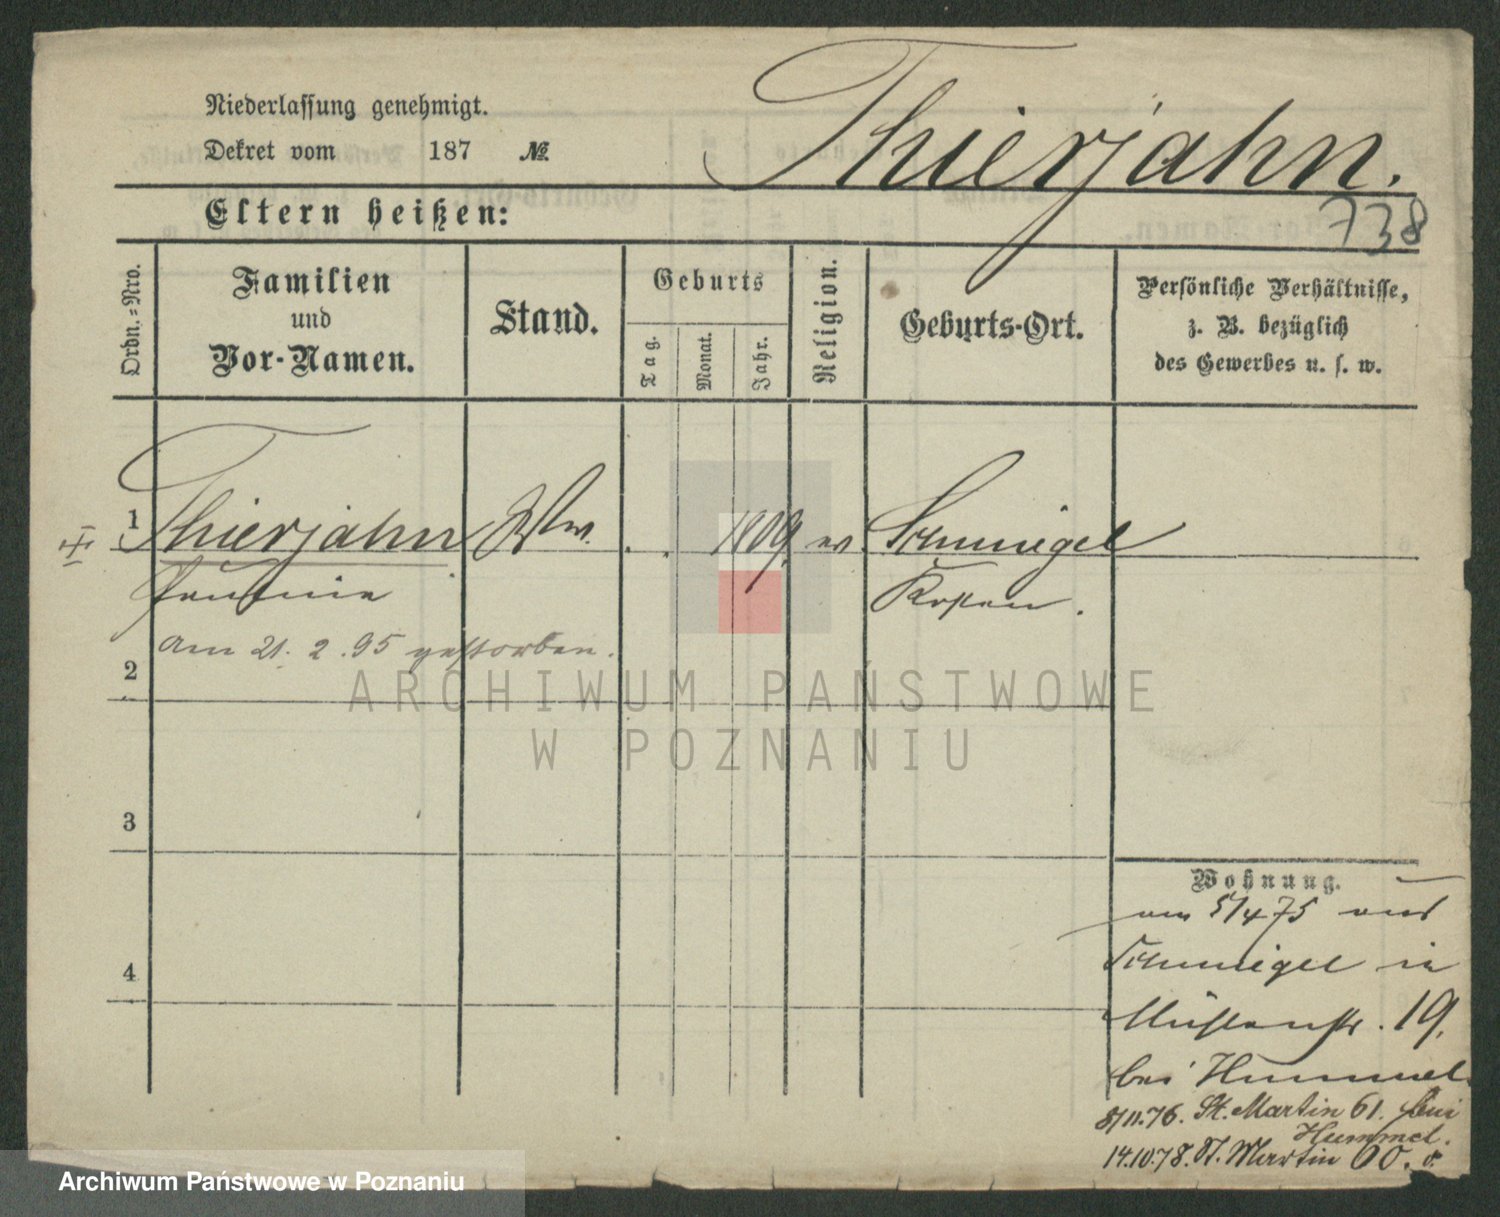 Niederlassung genehmigt.
Dekret vom 187 №
Thierjahn.
738
Eltern heißen:
Ordn.-Nro.
Familien
und
Vor-Namen.
Stand.
Geburts
Tag.
Monat.
Jahr.
Religion.
Geburts-Ort.
Persönliche Verhältnisse,
z. B. bezüglich
des Gewerbes u. s. w.
1 Thierjahn Ww. . . 1809. ev Schmiegel
Kosten.
am 21. 2. 95 gestorben.
2
3
4
Wohnung.
am 5/4 75 aus
Schmiegel in
19.
bei Hummel
8/11.76. St. Martin 61. bei
Hummel.
14.10.78. St. Martin 60.
ARCHIWUM PAŃSTWOWE
W POZNANIU
Archiwum Państwowe w Poznaniu